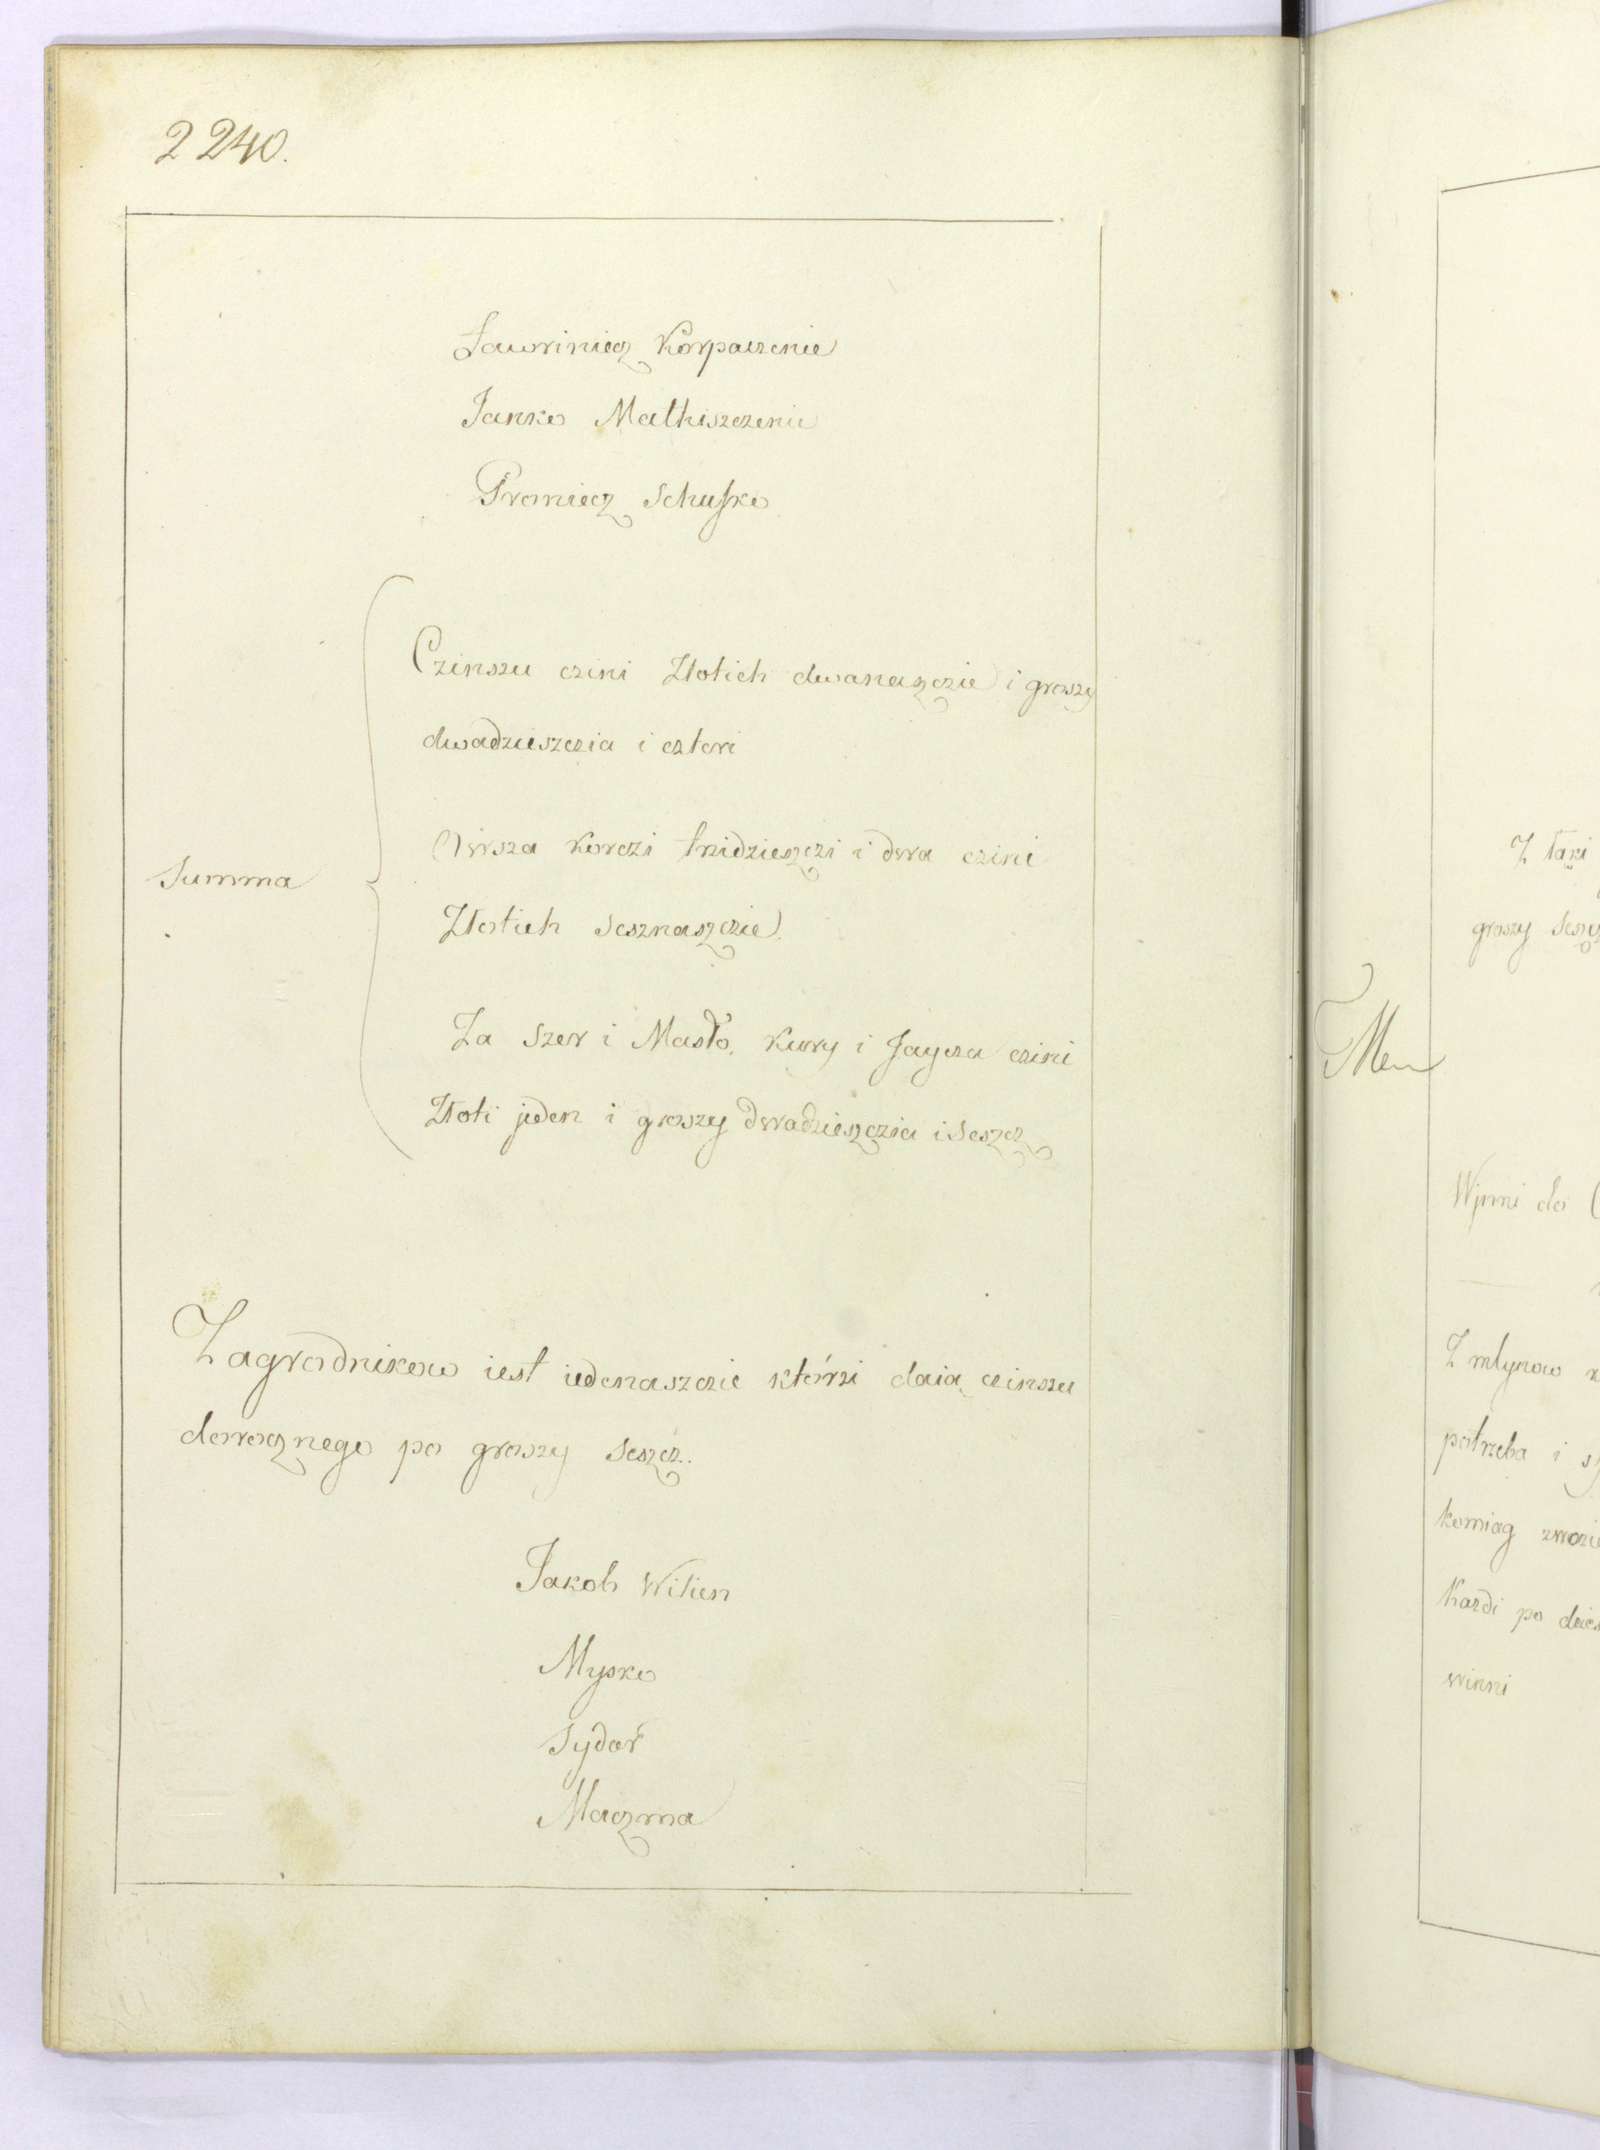 2240.
Ławriniecz Korpaczenie
Janko Mathiszczenie
Promiecz Schusko
Czinszu czini Złotich dwanaszczie i groszy
dwadzieszczia i czteri
Owsza korczi trzidzieszczi i dwa czini
Summa
Złotich Sesznaszczie
Za Szer i Masło, kury i Jaycza czini
Złoti jeden i groszy dwadzieszczia i Seszcz
Zagrodnikow iest iedenaszczie którzi daią czinszu
dorocznego po groszy Seszcz.
Jakob Witien
Mysko
Sydor
Maczma
Z łazi
groszy
Wjnni do
Z młynow
potrzeba i
komiag
Kazdi po
winni